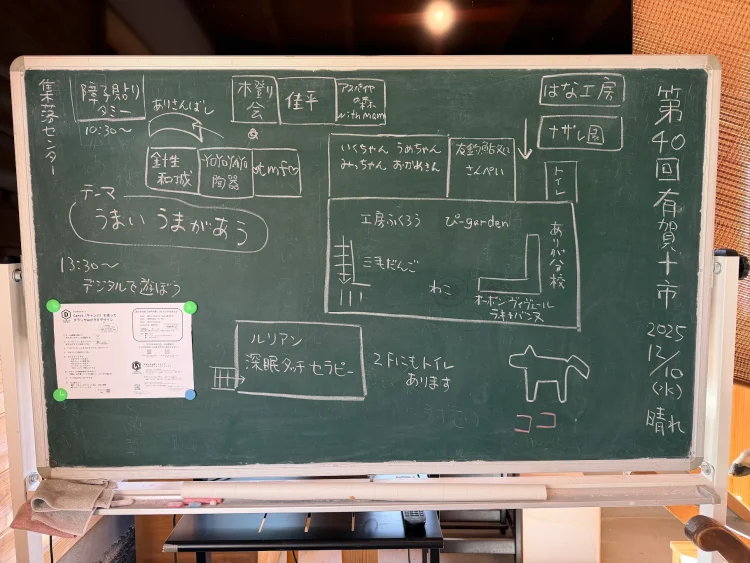 第40回有賀十市
2025
12/10
(水)
晴れ
集落センター
障子貼り
タミー
10:30〜
ありさんぼし
木登り
会
佳平
アスペサ
の森
with mam
はな工房
ナザレ園
針生
和城
YOYOYAYO
陶器
atmf♡
いくちゃん うめちゃん
みっちゃん おかめさん
さんぺい
トイレ
テーマ
うまい うまがあう
工房ふくろう ぴーgarden
三毛だんご
ねこ
ありが分校
オーボンヴィヴェール
ラキャバンヌ
13:30〜
デジタルで遊ぼう
ルリアン
深眠タッチセラピー
2Fにもトイレ
あります
ココ